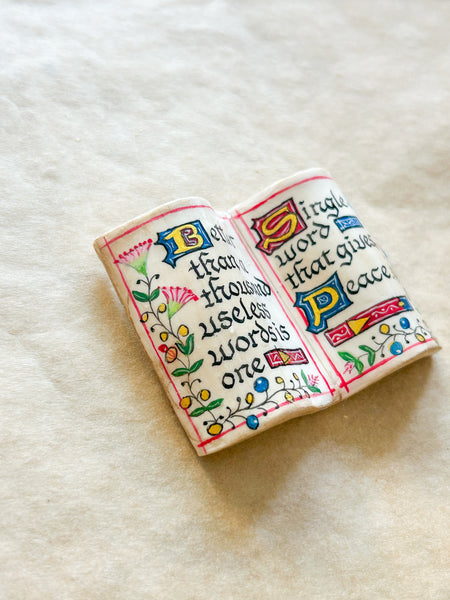 Better
than a
thousand
useless
words is
one
Single
word
that gives
Peace